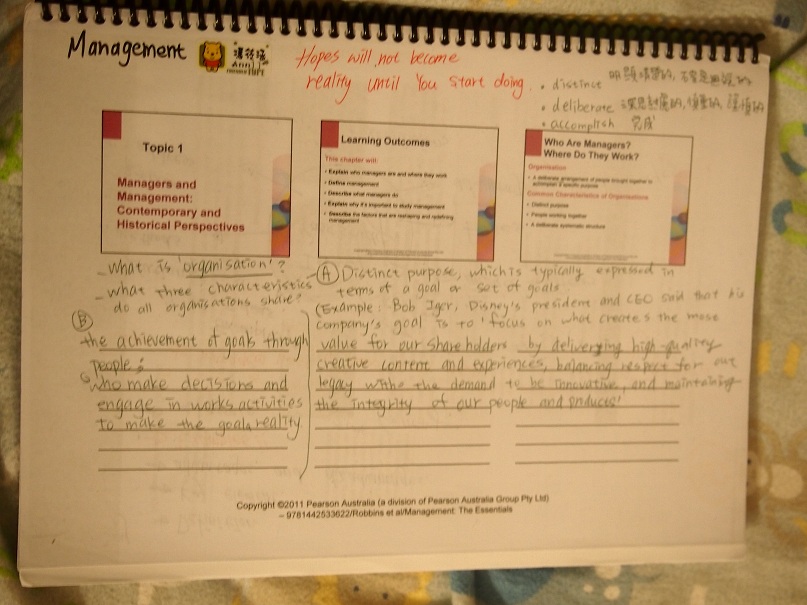 Management
Hopes will not become
reality until You start doing.
• distinct
• deliberate
• accomplish 完成
Topic 1
Managers and
Management:
Contemporary and
Historical Perspectives
Learning Outcomes
This chapter will:
• Explain who managers are and where they work
• Define management
• Describe what managers do
• Explain why it's important to study management
• Describe the factors that are reshaping and redefining
management
Who Are Managers?
Where Do They Work?
Organisation
• A deliberate arrangement of people brought together to
accomplish a specific purpose
Common Characteristics of Organisations
• Distinct purpose
• People working together
• A deliberate systematic structure
- What is 'organisation'?
- what three characteristics
do all organisations share?
B
the achievement of goals through
people;
who make decisions and
engage in works activities
to make the goals reality
A Distinct purpose, which is typically expressed in
terms of a goal or set of goals
(Example: Bob Iger, Disney's president and CEO said that his
company's goal is to 'focus on what creates the most
value for our shareholders by delivering high-quality
creative content and experiences, balancing respect for our
legacy withe the demand to be innovative, and maintaining
the integrity of our people and products'
Copyright ©2011 Pearson Australia (a division of Pearson Australia Group Pty Ltd)
– 9781442533622/Robbins et al/Management: The Essentials